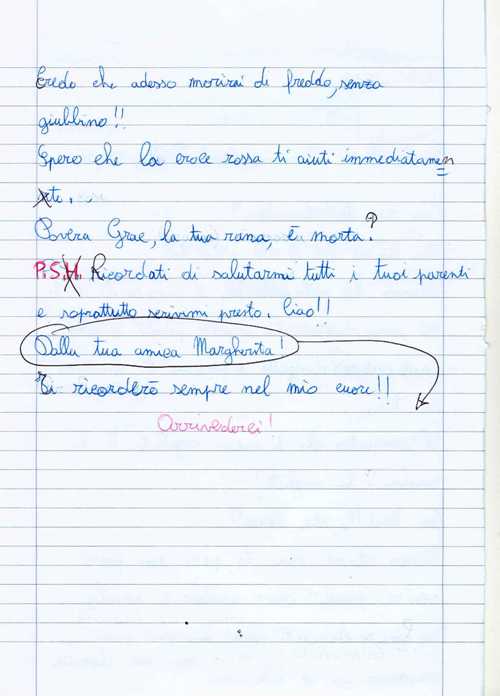 Credo che adesso morirai di freddo, senza
giubbino!!
Spero che la croce rossa ti aiuti immediatamen
te.
Povera Grac, la tua rana, è morta?
P.S. Ricordati di salutarmi tutti i tuoi parenti
e soprattutto scrivimi presto. Ciao!!
Dalla tua amica Margherita!
Ti ricorderò sempre nel mio cuore!!
Arrivederci!